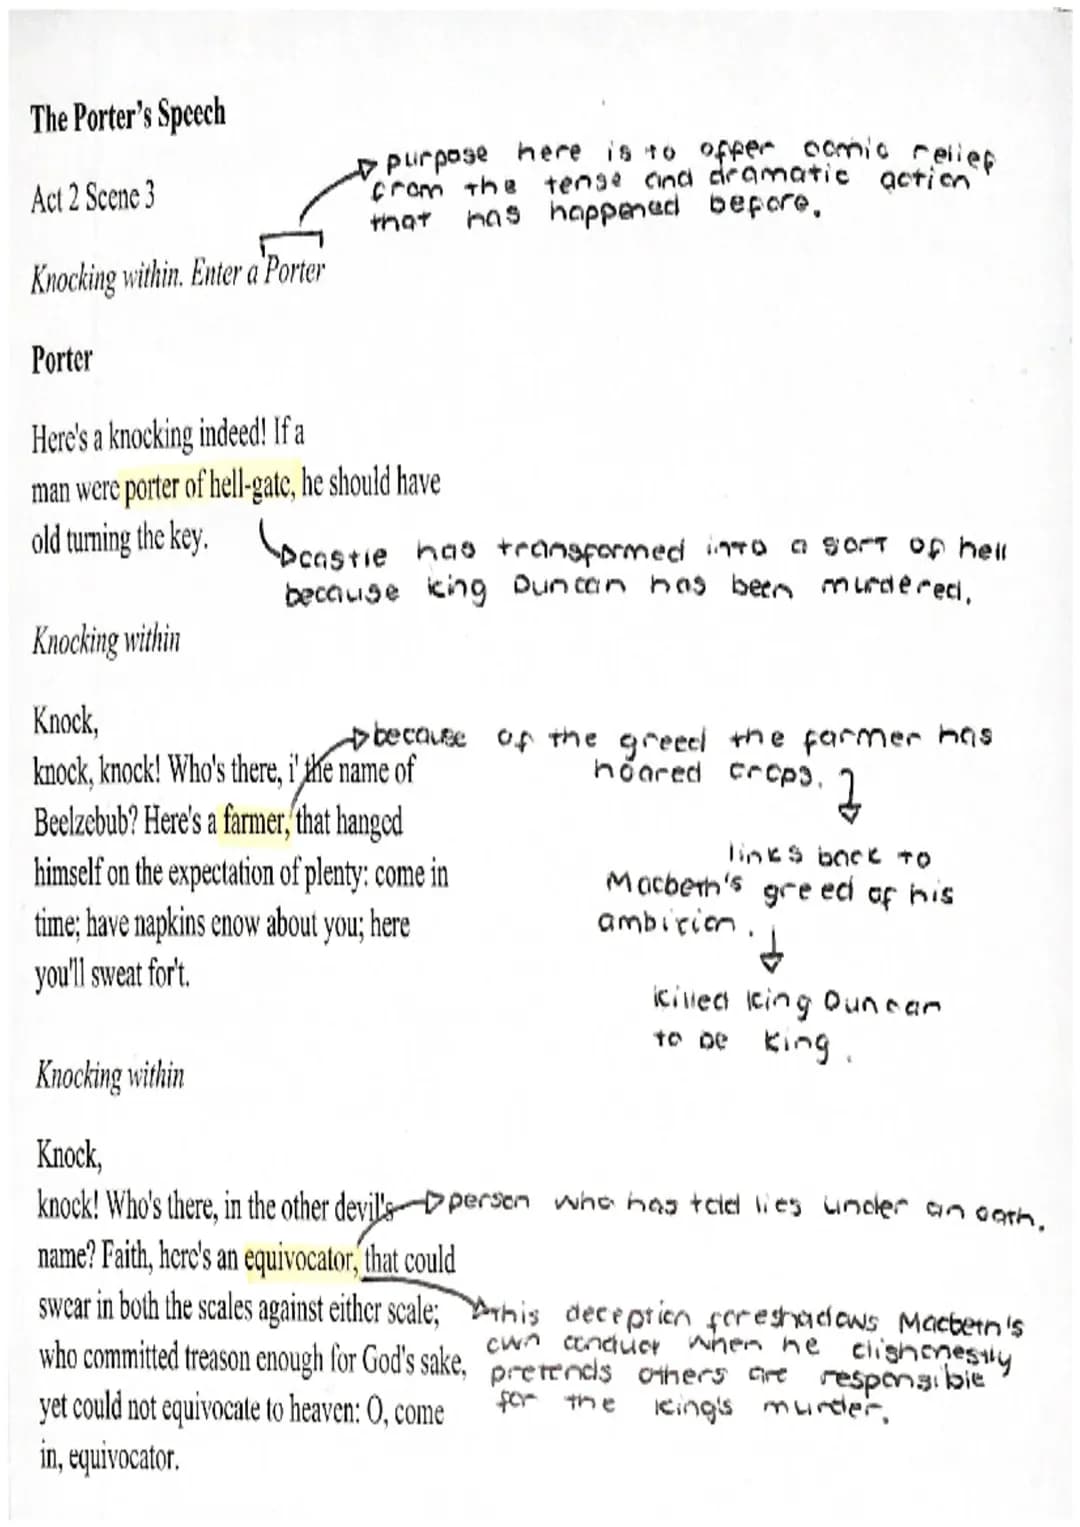 The Porter's Speech
purpose here is to offer comic relief
from the tense and dramatic action
that has happened before.
Act 2 Scene 3
Knocking within. Enter a Porter
Porter
Here's a knocking indeed! If a
man were porter of hell-gate, he should have
old turning the key.
castle has transformed into a sort of hell
because King Duncan has been murdered.
Knocking within
Knock,
because of the greed the farmer has
hoared crops.
knock, knock! Who's there, i' the name of
Beelzebub? Here's a farmer, that hanged
himself on the expectation of plenty: come in
time; have napkins enow about you; here
you'll sweat for't.
links back to
Macbeth's greed of his
ambition.
killed King Duncan
to be King.
Knocking within
Knock,
knock! Who's there, in the other devil's
person who has told lies under an oath.
name? Faith, here's an equivocator, that could
swear in both the scales against either scale;
who committed treason enough for God's sake,
yet could not equivocate to heaven: O, come
in, equivocator.
this deception foreshadows Macbeth's
own conduct when he dishonestly
pretends others are responsible
for the King's murder.